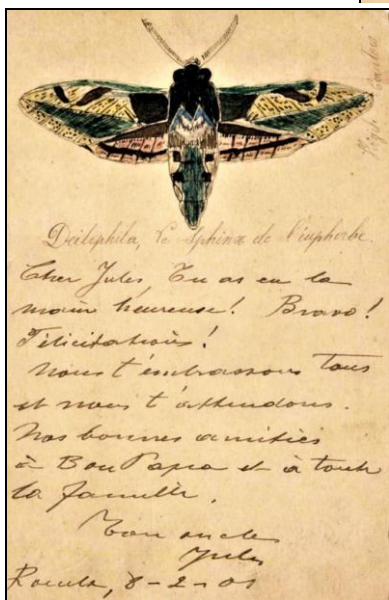 Deilephila, Le Sphinx de l'euphorbe.
Cher Jules, Tu as eu la
main heureuse! Bravo!
Félicitations!
Nous t'embrassons tous
et nous t'attendons.
Nos bonnes amitiés
à Bon Papa et à toute
la famille.
Ton oncle
Jules
8-2-01